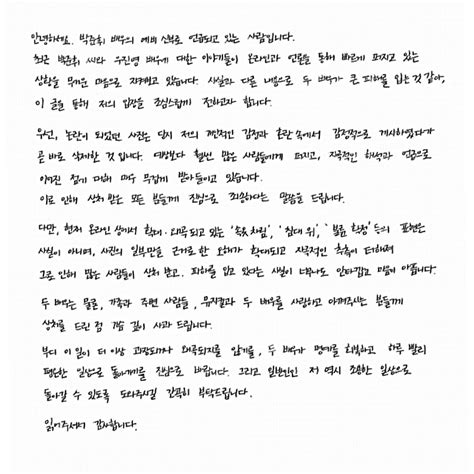 안녕하세요. 박준휘 배우의 예비 신부로 언급되고 있는 사람입니다.
최근 박준휘 씨와 우진영 배우에 대한 이야기들이 온라인과 언론을 통해 빠르게 퍼지고 있는
상황을 무거운 마음으로 지켜보고 있습니다. 사실과 다른 내용으로 두 배우가 큰 피해를 입는 것 같아,
이 글을 통해 저의 입장을 조심스럽게 전하고자 합니다.
우선, 논란이 되었던 사진은 당시 저의 개인적인 감정과 혼란 속에서 감정적으로 게시하였다가
곧바로 삭제한 것 입니다. 예상보다 훨씬 많은 사람들에게 퍼지고, 자극적인 해석과 언급으로
이어진 점에 대해 매우 무겁게 받아들이고 있습니다.
이로 인해 상처 받은 모든 분들께 진심으로 죄송하다는 말씀을 드립니다.
다만, 현재 온라인 상에서 확대·왜곡되고 있는 '속옷 차림', '침대 위', '불륜 확정' 등의 표현은
사실이 아니며, 사진의 일부만을 근거로 한 오해가 확대되고 자극적인 추측이 더해져
그로 인해 많은 사람들이 상처 받고. 피해를 입고 있다는 사실이 너무나도 안타깝고 마음이 아픕니다.
두 배우는 물론, 가족과 주변 사람들, 뮤지컬과 두 배우를 사랑하고 아껴주시는 분들께
상처를 드린 점 가슴 깊이 사과 드립니다.
부디 이 일이 더 이상 과장되거나 왜곡되지를 않기를, 두 배우가 명예를 회복하고 하루 빨리
평온한 일상으로 돌아가기를 진심으로 바랍니다. 그리고 일반인인 저 역시 조용한 일상으로
돌아갈 수 있도록 도와주시길 간곡히 부탁드립니다.
읽어주셔서 감사합니다.